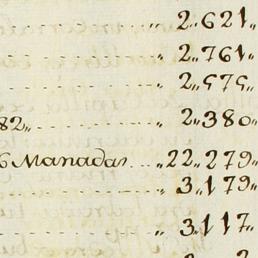 2..621..
2..761..
2..575..
82.. 2..380..
6 Manadas 22..279..
3..179..
3..117..